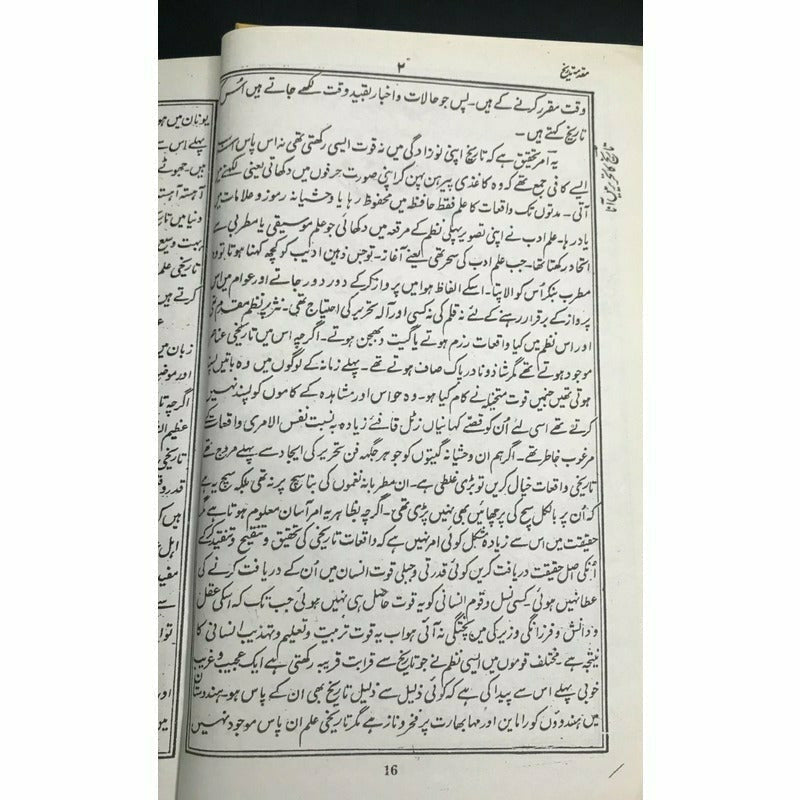 مقدمہ تاریخ
۲
وقت مقرر کرنے کے ہیں۔ پس جو حالات و اخبار بقید وقت لکھے جاتے ہیں اُس
تاریخ کہتے ہیں۔
یہ امر تحقیق ہے کہ تاریخ اپنی نوزادگی میں نہ قوت ایسی رکھتی تھی نہ اس پاس
ایسے کافی جمع تھے کہ وہ کاغذی پیرہن پہن کر اپنی صورت حرفوں میں دکھاتی یعنی لکھنے میں
آتی۔ مدتوں تک واقعات کا علم فقط حافظہ میں محفوظ رہا یا وحشیانہ رموز و علامات میں
یاد رہا۔ علم ادب نے اپنی تصویر پہلی نظم کے مرقعہ میں دکھائی جو علم موسیقی یا مطربی سے
اتحاد رکھتا تھا۔ جب علم ادب کی سحر تھی یعنے آغاز۔ تو جس ذہین ادیب کو کچھ کہنا ہوتا تو وہ
مطرب بنکر اُس کو الاپتا۔ اسکے الفاظ ہوا میں پرواز کر کے دور دور جاتے اور عوام میں اس
پرواز کے برقرار رہنے کے لئے نہ قلم کی نہ کسی اور آلہ تحریر کی احتیاج تھی۔ نثر پر نظم مقدم تھی
اور اس نظم میں کیا واقعات رزم ہوتے یا گیت و بھجن ہوتے۔ اگرچہ اس میں تاریخی عناصر
موجود ہوتے تھے مگر شاذ و نادر پاک صاف ہوتے تھے۔ پہلے زمانہ کے لوگوں میں وہ باتیں پسند
ہوتی تھیں جنہیں قوت متخیلہ نے کام کیا ہو۔ وہ حواس اور مشاہدہ کے کاموں کو پسند نہیں
کرتے تھے اسی لئے اُن کو قصے کہانیاں زٹل قافئے زیادہ بہ نسبت نفس الامری واقعات کے
مرغوب خاطر تھے۔ اگر ہم ان وحشیانہ گیتوں کو جو ہر جگہ فن تحریر کی ایجاد سے پہلے مروج تھے
تاریخی واقعات خیال کریں تو بڑی غلطی ہے۔ ان مطربانہ نغموں کی بنا سچ پر نہ تھی بلکہ سچ یہ ہے
کہ اُن پر بالکل سچ کی پرچھائیں بھی نہیں پڑی تھی۔ اگرچہ بظاہر یہ امر آسان معلوم ہوتا ہے مگر
حقیقت میں اس سے زیادہ مشکل کوئی امر نہیں ہے کہ واقعات تاریخی کی تحقیق و تنقیح و تنقید کرکے
اُنکی اصل حقیقت دریافت کریں کوئی قدرتی و جبلی قوت انسان میں اُن کے دریافت کرنے کی
عطا نہیں ہوئی۔ کسی نسل و قوم انسانی کو یہ قوت حاصل ہی نہیں ہوئی جب تک کہ اسکی عقل
و دانش و فرزانگی و زیرکی میں پختگی نہ آئی ہو اب یہ قوت تربیت و تعلیم و تہذیب انسانی کا
نتیجہ ہے۔ مختلف قوموں میں ایسی نظم نے جو تاریخ سے قرابت قریبہ رکھتی ہے ایک عجیب و غریب
خوبی پہلے اس سے پیدا کی ہے کہ کوئی ذلیل سے ذلیل تاریخ بھی ان کے پاس ہو۔ ہندوستان
میں ہندوؤں کو راماین اور مہابھارت پر فخر و ناز ہے مگر تاریخی علم ان پاس موجود نہیں
16
یونان میں
پہلے اس سے
ہیں۔ جھوٹے
آہستہ آہستہ
دنیا میں
بہت وسیع
تاریخی علم
کرتے ہیں
زبان میں
اور
اگرچہ
عظیم
تاریخی
ہیں ک
اہل
مفید
سے
تو
اور